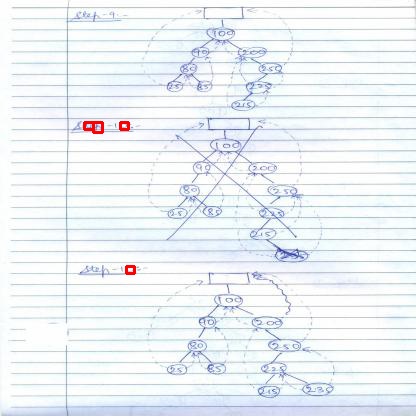 Step-9.
100
90 200
80 250
25 85 225
215
100
90 200
80 250
25 85 225
215
Step-1
100
90 200
80 250
25 85 225
215 235